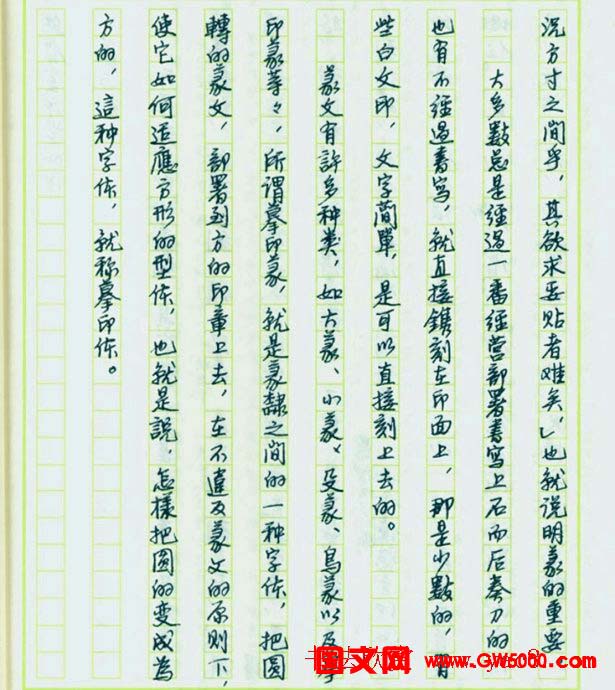 况方寸之間乎，其欲求妥贴者难矣，」也就说明篆的重要
大多數总是經過一番經营部署書寫上石而后奏刀的
也有不經過書写，就直接鐫刻在印面上，那是少數的，有
些白文印，文字简單，是可以直接刻上去的。
篆文有許多种类，如大篆、小篆、殳篆、鳥篆以及摹
印篆等々，所谓摹印篆，就是篆隸之间的一种字体，把圆
轉的篆文，部署到方的印章上去，在不違反篆文的原则下，
使它如何适應方形的型体，也就是說，怎樣把圆的变成为
方的，這种字体，就称摹印体。
图文网 www.GW5000.com